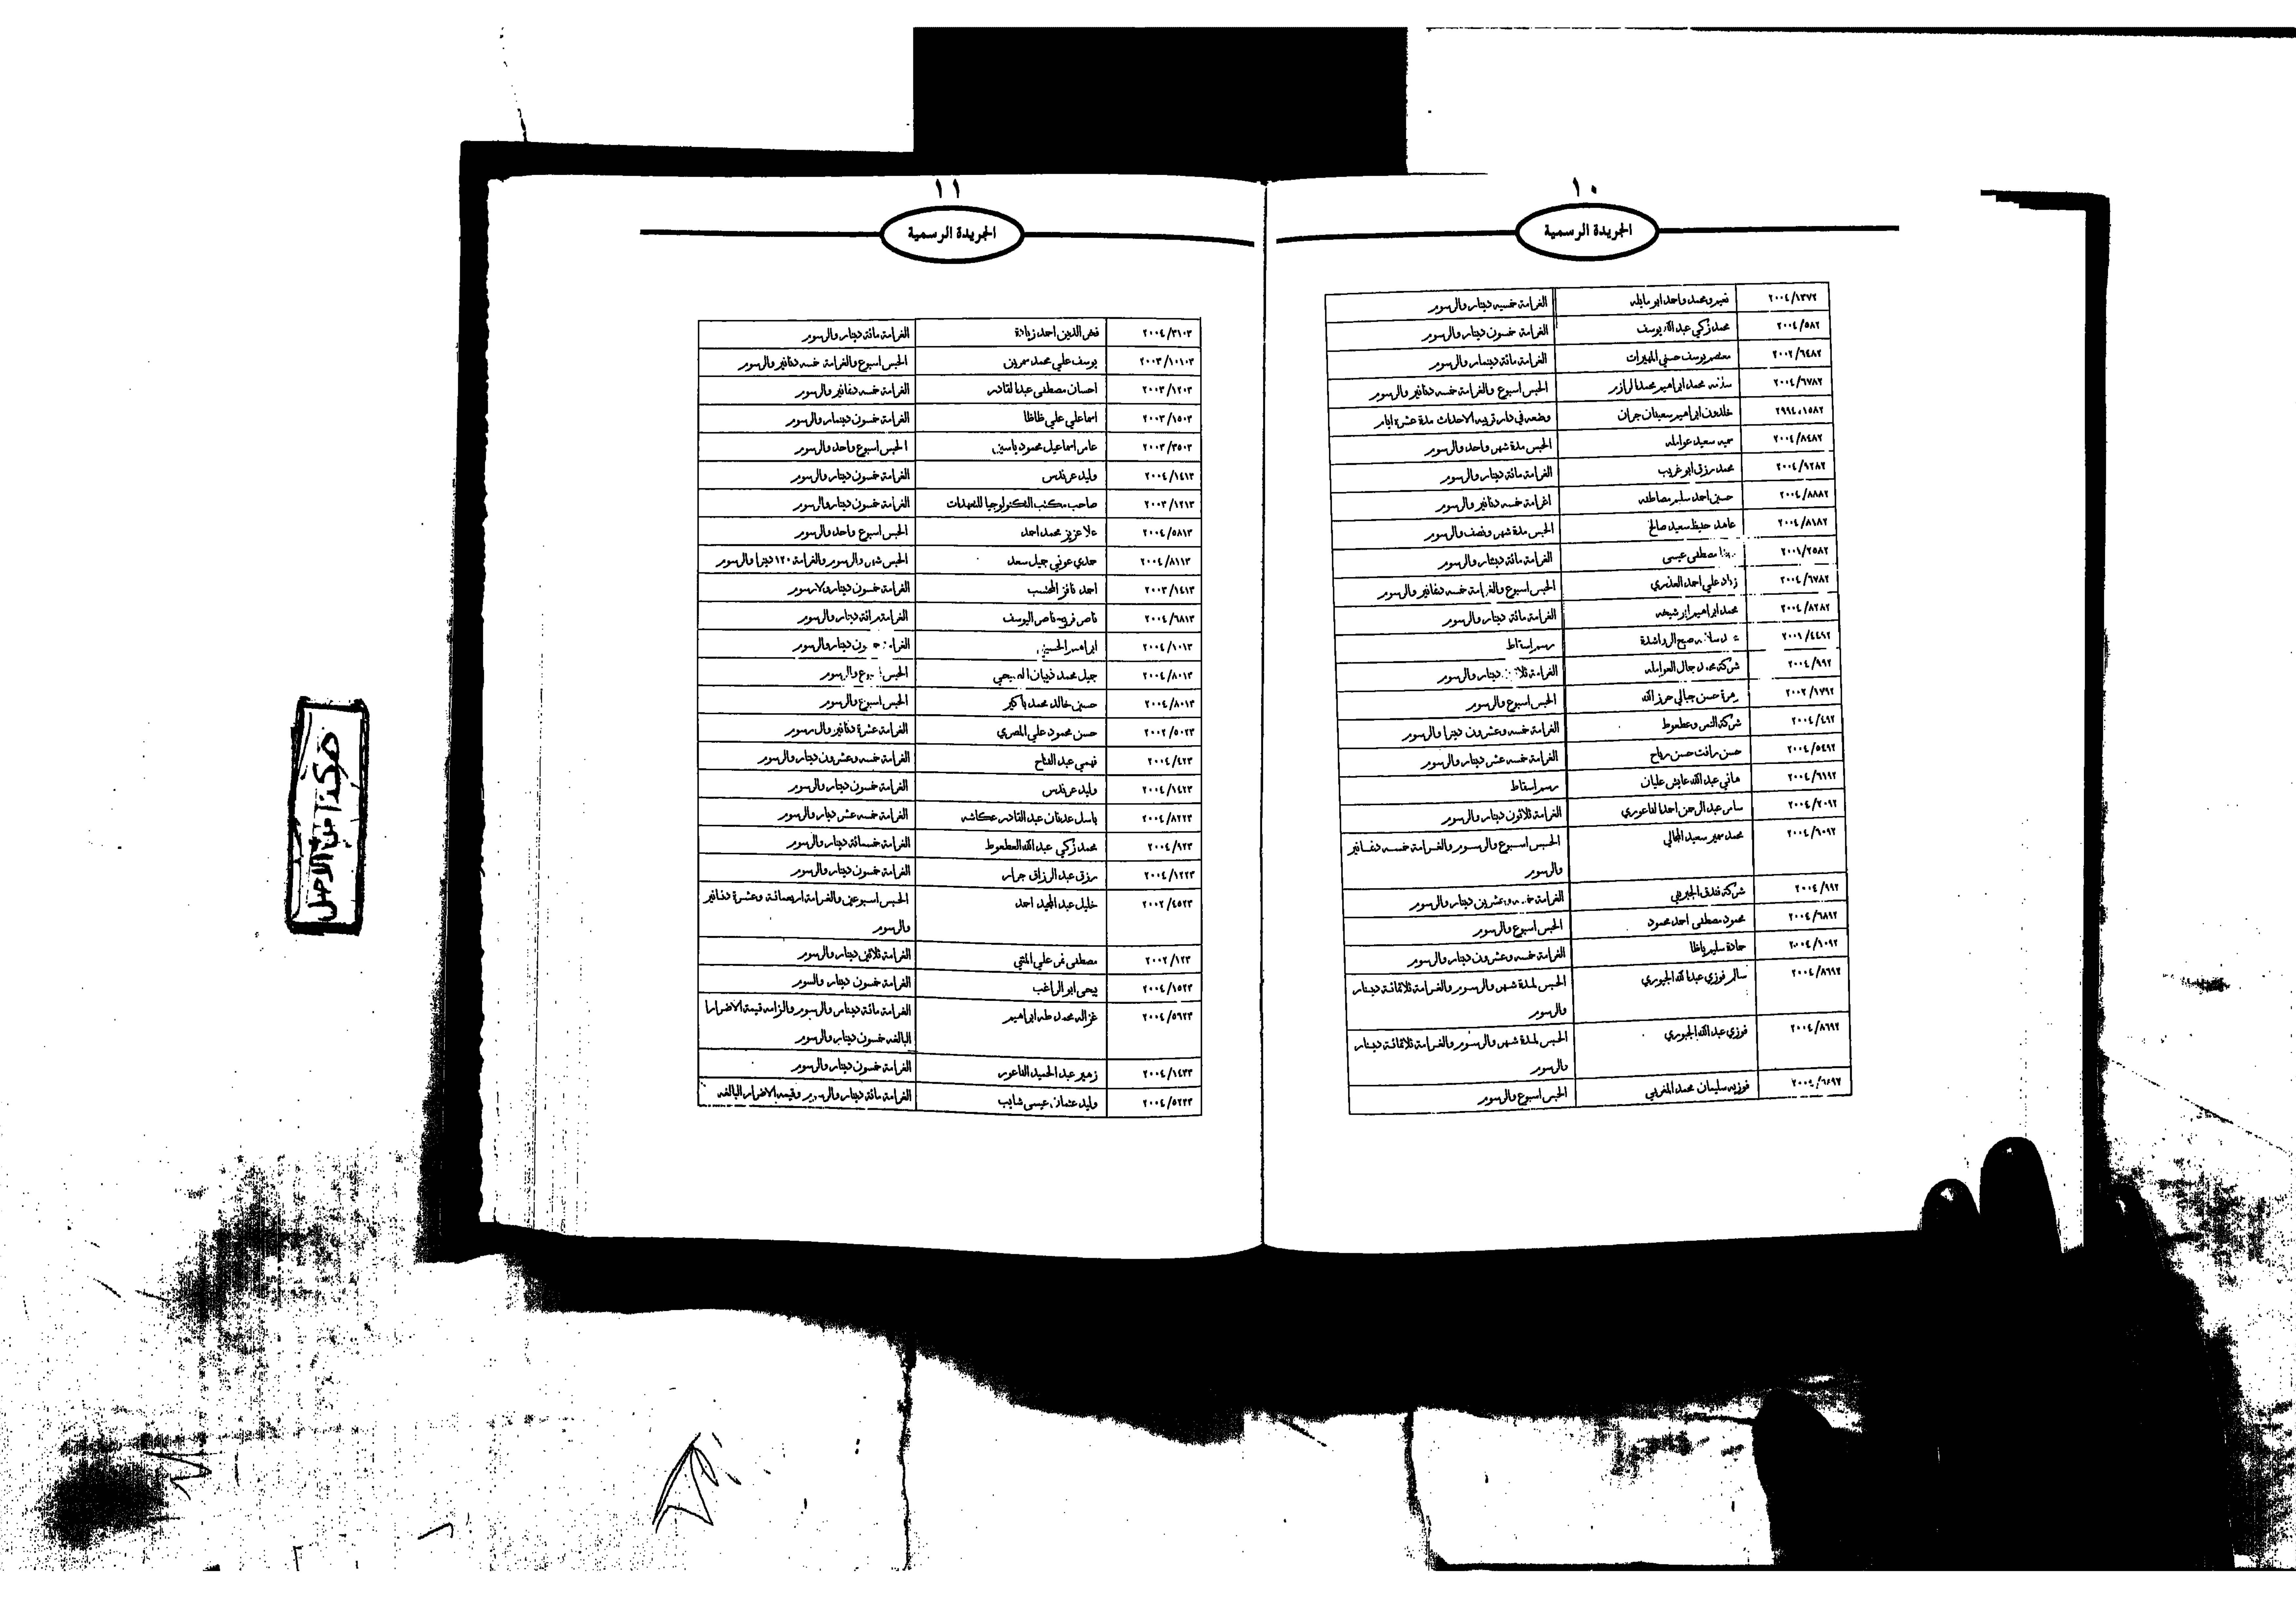 ١٠
الجريدة الرسمية
٢٠٠٤/١٣٧٢ نمير ومحمد واحمد ابو مايله الغرامة خمسيه دينار والرسوم
٢٠٠٤/٥٨٢ محمد زكي عبد الله يوسف الغرامة خمسون دينار والرسوم
٢٠٠٢/٦٤٨٢ معتصم يوسف حسني المهيرات الغرامة مائة دينار والرسوم
٢٠٠٤/٦٧٨٢ محمد ابراهيم محمد الرازم الحبس اسبوع والغرامة خمسه دنانير والرسوم
٢٩٩٤٠١٥٨٢ خلدون ابراهيم سعينان جران وضعه في دار تربيه الاحداث مدة عشرة ايام
٢٠٠٤/٨٤٨٢ سميه سعيد عوامله الحبس مدة شهر واحد والرسوم
٢٠٠٤/٩٢٨٢ محمد رزق ابو غريب الغرامة مائة دينار والرسوم
٢٠٠٤/٨٨٨٢ حسين احمد سليم مصاطفه اغرامة خمسه دنانير والرسوم
٢٠٠٤/٨١٨٢ عاهد حيظ سعيد صالح الحبس مدة شهر ونصف والرسوم
٢٠٠١/٢٥٨٢ مصطفى عيسى الغرامة مائة دينار والرسوم
٢٠٠٤/٦٧٨٢ زياد علي احمد العذري الحبس اسبوع والغرامة خمسه دنانير والرسوم
٢٠٠٤/٨٢٨٢ محمد ابراهيم ابو شيخه الغرامة مائة دينار والرسوم
٢٠٠١/٤٤٩٢ صبح الرواشدة رسم اسقاط
٢٠٠٤/٩٩٢ شركة محمد جمال العوامله الغرامة دينار والرسوم
٢٠٠٢/١٧٩٢ حسن جبالي حرز الله الحبس اسبوع والرسوم
٢٠٠٤/٤٩٢ شركة النمر وعطعوط الغرامة خمسه وعشرون دينرا والرسوم
٢٠٠٤/٥٤٩٢ حسن رافت حسن رباح الغرامة خمسه عشر دينار والرسوم
٢٠٠٤/٦١٩٢ هاني عبد الله عايش عليان رسم اسقاط
٢٠٠٤/٢٠٩٢ سامر عبد الرحمن احمد الفاعوري الغرامة ثلاثون دينار والرسوم
٢٠٠٤/٦٠٩٢ محمد سمير سعيد المجالي الحبس اسبوع والرسوم والغرامة خمسه دنانير
والرسوم
٢٠٠٤/٩٩٢ شركة فندق الجبريني الغرامة وعشرين دينار والرسوم
٢٠٠٤/٦٨٩٢ محمود مصطفى احمد محمود الحبس اسبوع والرسوم
٢٠٠٤/١٠٩٢ حمادة سليم ياظا الغرامة خمسه وعشرون دينار والرسوم
٢٠٠٤/٨٦٩٢ سالم فوزي عبد الله الجبوري الحبس لمدة شهر والرسوم والغرامة ثلاثمائة دينار
والرسوم
٢٠٠٤/٨٦٩٢ فوزي عبد الله الجبوري الحبس لمدة شهر والرسوم والغرامة ثلاثمائة دينار
والرسوم
فوزيه سليمان محمد المغربي الحبس اسبوع والرسوم
١١
الجريدة الرسمية
٢٠٠٤/٣١٠٣ فخر الدين احمد زيادة الغرامة مائة دينار والرسوم
٢٠٠٣/١٠١٠٣ يوسف علي محمد سمرين الحبس اسبوع والغرامة خمسه دنانير والرسوم
٢٠٠٣/١٢٠٣ احسان مصطفى عبد القادر الغرامة خمسه دنانير والرسوم
٢٠٠٣/١٥٠٣ اسماعلي علي ظاظا الغرامة خمسون دينار والرسوم
٢٠٠٣/٣٥٠٣ عامر اسماعيل محمود ياسين الحبس اسبوع واحد والرسوم
٢٠٠٤/١٤١٣ وليد عرندس الغرامة خمسون دينار والرسوم
٢٠٠٣/١٢١٣ صاحب مكتب التكنولوجيا للتعهدات الغرامة خمسون دينار والرسوم
٢٠٠٤/٥٨١٣ علا عزيز محمد احمد الحبس اسبوع واحد والرسوم
٢٠٠٤/٨١١٣ حمدي عوني جميل سعد الحبس شهر والرسوم والغرامة ١٢٠ دينرا والرسوم
٢٠٠٣/١٤١٣ احمد نافز المحتسب الغرامة خمسون دينار ولارسوم
٢٠٠٤/٦٨١٣ ناصر فريد ناصر اليوسف الغرامة مائة دينار والرسوم
٢٠٠٤/١٠١٣ ابراهيم الحسيني الغرامة خمسون دينار والرسوم
٢٠٠٤/٨٠١٣ جميل محمد ذيبان الحبس اسبوع والرسوم
٢٠٠٤/٨٠١٣ حسين خالد محمد باكير الحبس اسبوع والرسوم
٢٠٠٢/٥٠٢٣ حسن محمود علي المصري الغرامة عشرة دنانير والرسوم
٢٠٠٤/٤٢٣ فهمي عبد الفتاح الغرامة خمسه وعشرون دينار والرسوم
٢٠٠٤/١٤٢٣ وليد عرندس الغرامة خمسون دينار والرسوم
٢٠٠٤/٨٢٢٣ باسل عدنان عبد القادر عكاشه الغرامة خمسه عشر دينار والرسوم
٢٠٠٤/٩٢٣ محمد زكي عبد الله العطعوط الغرامة خمسمائة دينار والرسوم
٢٠٠٤/١٢٢٣ رزق عبد الرزاق جرار الغرامة خمسون دينار والرسوم
٢٠٠٢/٤٥٢٣ خليل عبد المجيد احمد الحبس اسبوعين والغرامة اربعمائة وعشرة دنانير
والرسوم
٢٠٠٢/١٢٣ مصطفى نمر علي المتني الغرامة ثلاثين دينار والرسوم
٢٠٠٤/١٥٢٣ يحيى ابو الراغب الغرامة خمسون دينار والسوم
٢٠٠٤/٥٦٢٣ غزاله محمد طه ابراهيم الغرامة مائة دينار والرسوم والزامه قيمة الاضرارا
البالغه خمسون دينار والرسوم
٢٠٠٤/١٤٣٣ زهير عبد الحميد الفاعور الغرامة خمسون دينار والرسوم
٢٠٠٤/٥٢٣٣ وليد عثمان عيسى شايب الغرامة مائة دينار والرسوم وقيمه الاضرار البالغه
هكذا من الأصل